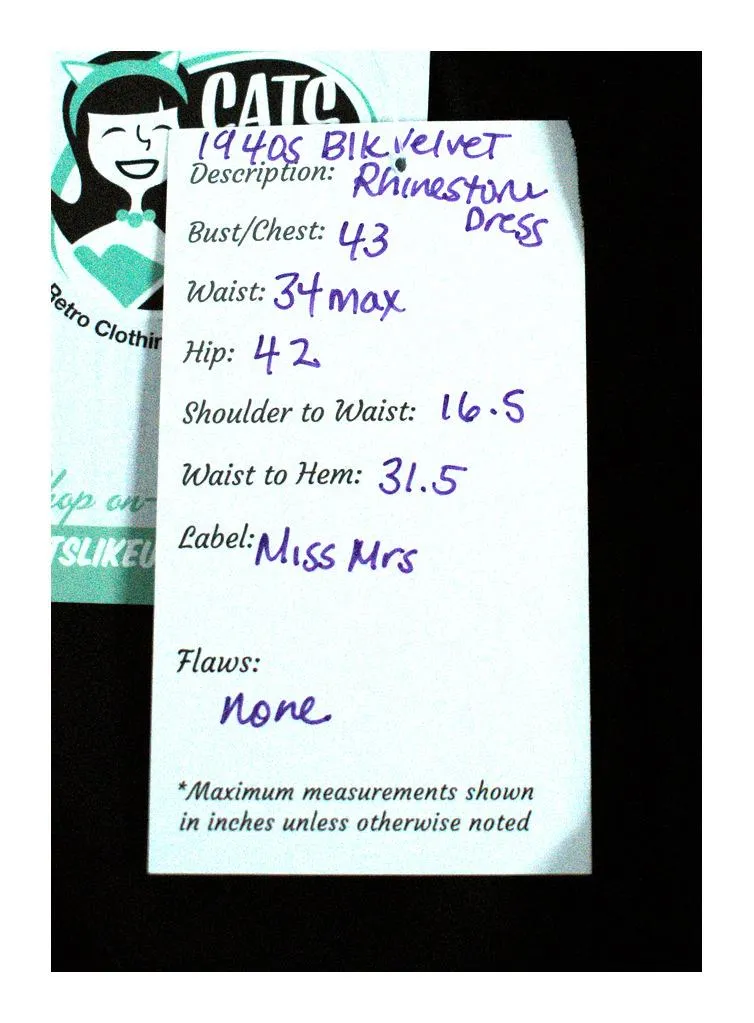 CATS
1940s Blk Velvet
Description: Rhinestone
Dress
Bust/Chest: 43
Waist: 34 max
Hip: 42
Retro Clothin
Shoulder to Waist: 16.5
Waist to Hem: 31.5
hop on-
Label: Miss Mrs
TSLIKEU
Flaws:
none
*Maximum measurements shown
in inches unless otherwise noted